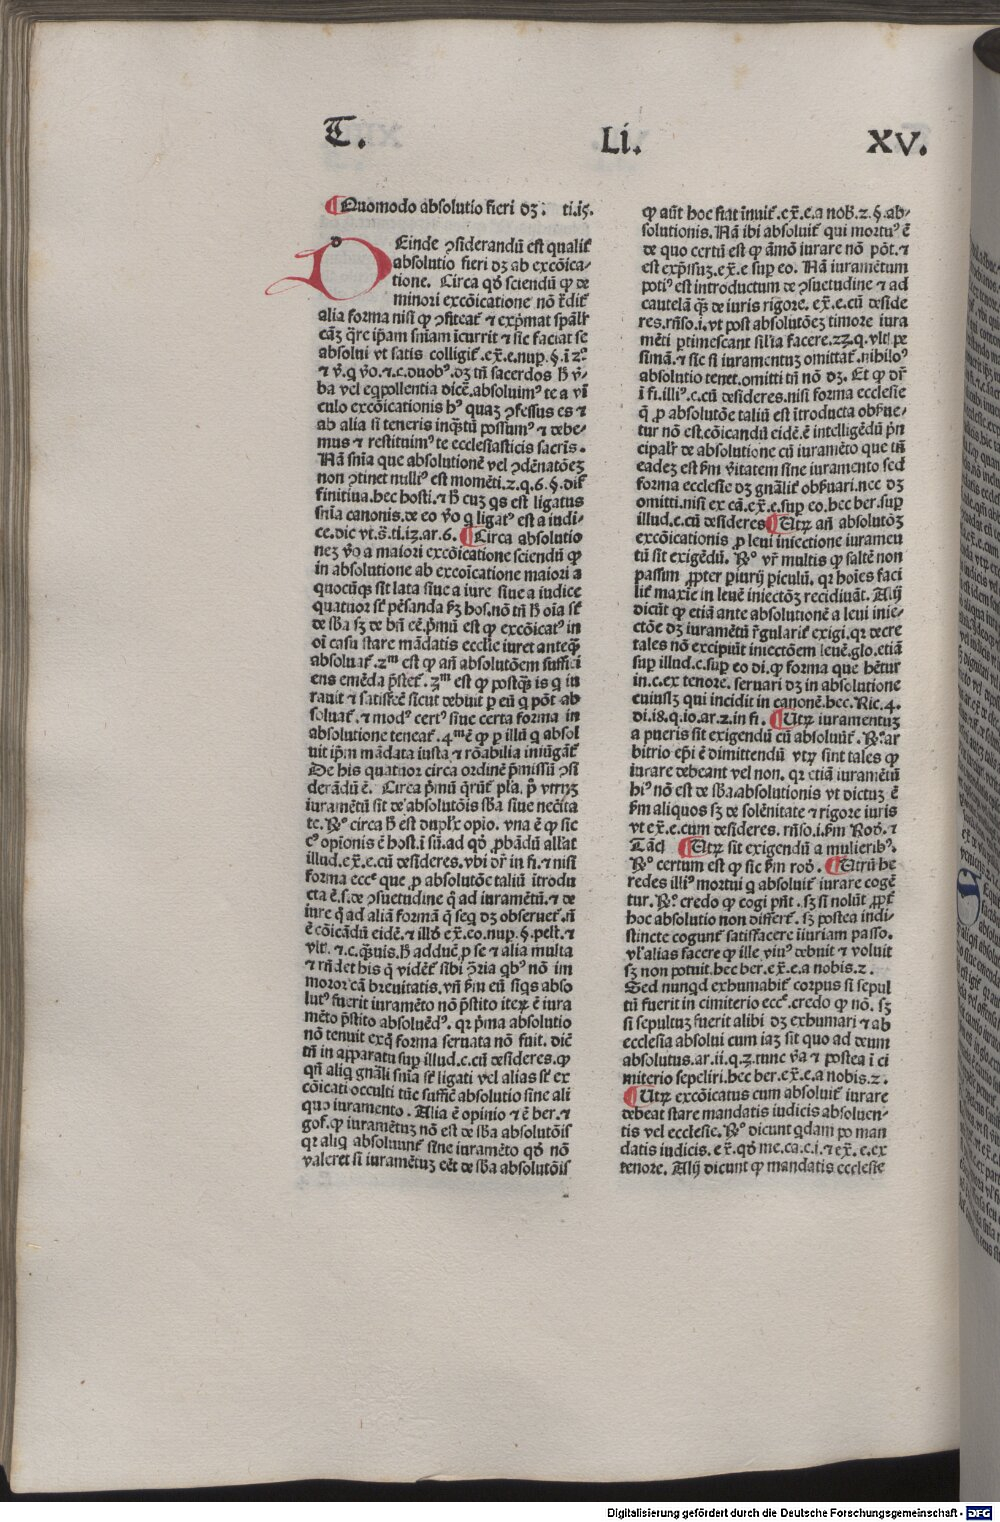 T.
Li.
XV.
¶Quomodo absolutio fieri dꝫ. ti.15.
DEinde ꝯsiderandū est qualit̄
absolutio fieri dꝫ ab excōica-
tione. Circa qđ sciendū ꝙ de
minori excōicatione nō r̄dit̄
alia forma nisi ꝙ ꝯfiteat̄ ⁊ exp̄mat sp̄alr̄
cāꝫ q̄re ip̄am sn̄iam īcurrit ⁊ sic faciat se
absolui vt satis colligit̄.ex̄.e.nup̄.§.ī 2º
⁊ v̄.q v̄o.⁊.c.duobꝰ.dꝫ tn̄ sacerdos h̄ v̄-
ba vel eq̄pollentia dicē.absoluimꝰ te a vī
culo excōicationis hꝰ quaꝫ ꝯfessus es ⁊
ab alia si teneris inqꝫtū possumꝰ ⁊ debe-
mus ⁊ restituimꝰ te ecclesiasticis sacrīs.
Nā sn̄ia que absolutionē vel ꝯdēnatōeꝫ
non ꝯtinet nulliꝰ est momēti.2.q.6.§.dif̄
finitiua.hec hosti.⁊ h̄ cuꝫ qs est ligatus
sn̄ia canonis.de eo v̄o q ligatꝰ est a iudi-
ce.dic vt.s̄.ti.12.ar.6. ¶Circa absolutio
neꝫ v̄o a maiori excōicatione sciendū ꝙ
in absolutione ab excoīcatione maiori a
quocūqꝫ sit lata siue a iure siue a iudice
quatuor st̄ pēsanda ẜꝫ hos.nō tn̄ h̄ oīa st̄
de sb̄a sꝫ de bn̄ eē.p̄mū est ꝙ excōicatꝰ in
oī casu stare mādatis ecclīe iuret anteqꝫ
absoluat̄.2ᵐ est ꝙ añ absolutōem suffici
ens emēda p̄stet̄.3ᵐ est ꝙ postqꝫ is q iu
rauit ⁊ satisfēē sicut debuit p eū q pōt ab
soluat̄.⁊ modꝰ certꝰ siue certa forma in
absolutione teneat̄.4ᵐ ē ꝙ p illū q absol
uit ip̄m mādata iusta ⁊ rōabilia iniūgāt̄
De his quatuor circa ordinē p̄missū ꝯsi
derādū ē. Circa p̄mū q̄rūt̄ pl̄a. p̄ vtrūꝫ
iuramētū sit de absolutōis sb̄a siue necīta
te.Rº circa h̄ est duplr̄ opio. vna ē ꝙ sic
cꝰ opionis ē host.ī sū.ad qđ ꝓbādū all̄at
illud.ex̄.e.cū desideres.vbi dr̄ in fi.⁊ nisi
forma eccᵉ que ꝓ absolutōe taliū ītrodu
cta ē.s̄.de ꝯsuetudine q̄ ad iuramētū.⁊ de
iure q̄ ad aliā formā q̄ seq̄ dꝫ obseruet̄.n̄
ē cōicādū eidē.⁊ illđ ex̄.eo.nup̄.§.pelt̄.⁊
vlt̄.⁊.c.qꝫuis.h̄ adducē ꝑ se ⁊ alia multa
⁊ rn̄det his q̄ vidēt̄ sibi ꝯria qbꝰ nō im
moror cā breuitatis.vn̄ ẜm eū siqs abso
lutꝰ fuerit iuramēto nō p̄stito iteꝝ ē iura
mēto p̄stito absoluēdꝰ. qr p̄ma absolutio
nō tenuit exq̄ forma seruata nō fuit. diē
tn̄ in apparatu suꝑ illud.c.cū desideres.ꝙ
qn̄ aliq gnāli sn̄ia st̄ ligati vel alias st̄ ex
cōicati occulti tūc suffic̄ absolutio sine ali
quo iuramento. Alia ē opinio ⁊ ē ber.⁊
gof.ꝙ iuramētuꝫ nō est de sb̄a absolutōis
qr aliq absoluunt̄ sine iuramēto qđ nō
valeret si iuramētuꝫ eēt de sb̄a absolutōis
ꝙ aūt hoc fiat īnuit̄.ex̄.e.a nob̄.2.§.ab-
solutionis.Nā ibi absoluit̄ qui mortuꝰ ē
de quo certū est ꝙ āmō iurare nō pōt.⁊
est exp̄ssuꝫ.ex̄.e suꝑ eo. Nā iuramētum
potiꝰ est introductum de ꝯsuetudine ⁊ ad
cautelā qꝫ de iuris rigore. ex̄.e.cū deside
res.rn̄so.i.vt post absolutōeꝫ timore iura
mēti ꝑtimescant sil̄ia facere.23.q.vlt̄.pe
simā.⁊ sic si iuramentuꝫ omittat̄.nihiloꝰ
absolutio tenet.omitti tn̄ nō dꝫ. Et ꝙ dr̄
ī fi.illiꝰ.c.cū desideres.nisi forma ecclesie
q̄ ꝓ absolutōe taliū est ītroducta obẜue-
tur nō est.cōicandū eidē.ē intelligēdū p̄n
cipalr̄ de absolutione cū iuramēto que tn̄
eadeꝫ est ẜm v̄itatem sine iuramento sed
forma ecclesie dꝫ gnālit̄ obẜuari.nec dꝫ
omitti.nisi ex cā.ex̄.e.suꝑ eo.hec ber.suꝑ
illud.e.cū desideres ¶Utꝝ añ absolutōꝫ
excōicationis ꝓ leui iniectione iuramen
tū sit exigēdū. Rº vr̄ multis ꝙ saltē non
passim ꝓpter piurij piculū. qr hoīes faci
lit̄ maxīe in leuē iniectōꝫ recidiuāt. Alij
dicūt ꝙ etiā ante absolutionē a leui inie-
ctōe dꝫ iuramētū r̄gularit̄ exigi.qr decre
tales nō excipiūt iniectōem leuē.glo.etiā
suꝑ illud.c.suꝑ eo di.ꝙ forma que hētur
in.c.ex tenore. seruari dꝫ in absolutione
cuiuslꝫ qui incidit in canonē.hec. Ric.4.
di.18.q.10.ar.2.in fi. ¶Utꝝ iuramentuꝫ
a pueris sit exigendū cū absoluūt̄. Rº.ar
bitrio epī ē dimittendū vtꝝ sint tales ꝙ
iurare debeant vel non. qr etiā iuramētū
hiꝰ nō est de sb̄a.absolutionis vt dictuꝫ ē
ẜm aliquos sꝫ de solēnitate ⁊ rigore iuris
vt ex̄.e.cum desideres. rn̄so.i.ẜm Rođ.⁊
Tācꝭ ¶Utꝝ sit exigendū a mulieribꝰ.
Rº certum est ꝙ sic ẜm rođ. ¶Utrū he
redes illiꝰ mortui q absoluit̄ iurare cogē
tur. Rº. credo ꝙ cogi pn̄t. sꝫ si nolūt ꝓpt̄
hoc absolutio non differt̄. sꝫ postea indi-
stincte cogunt̄ satisfacere iniuriam passo.
vl̓ alias facere ꝙ ille viuꝰ debuit ⁊ voluit
sꝫ non potuit.hec ber.ex̄.e.a nobis.2.
Sed nunqd exhumabit̄ corpus si sepul
tū fuerit in cimiterio eccᵉ.credo ꝙ nō. sꝫ
si sepultuꝫ fuerit alibi dꝫ exhumari ⁊ ab
ecclesia absolui cum iaꝫ sit quo ad deum
absolutus.ar.ii.q.3.tunc v̄a ⁊ postea ī ci
miterio sepeliri.hec ber.ex̄.e.a nobis.2.
¶Utꝝ excōicatus cum absoluit̄ iurare
debeat stare mandatis iudicis absoluen-
tis vel ecclesie. Rº dicunt qdam po man
datis iudicis.ex̄.qđ me.ca.c.i.⁊ ex̄.e.ex
tenore. Alij dicunt ꝙ mandatis ecclesie
Digitalisierung gefördert durch die Deutsche Forschungsgemeinschaft - DFG